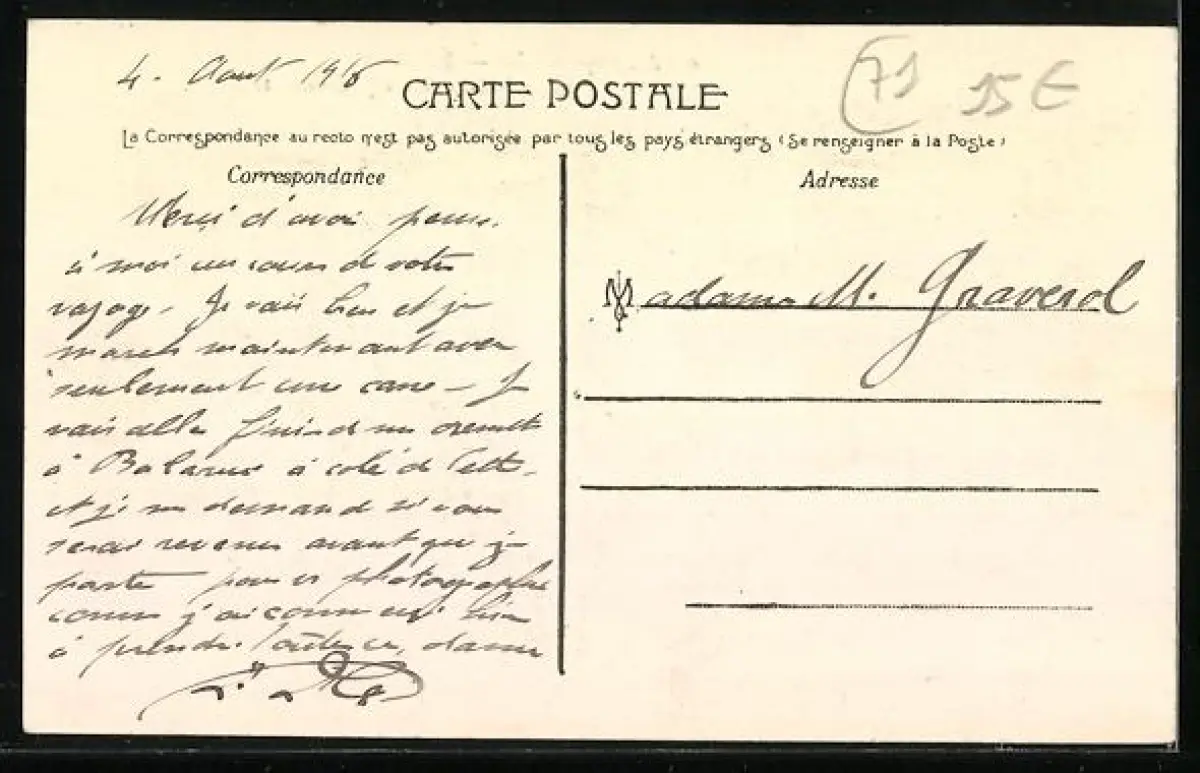 4. Aout 1916
71
15 €
CARTE POSTALE
La Correspondance au recto n'est pas autorisée par tous les pays étrangers (Se renseigner à la Poste)
Correspondance
Adresse
Merci d'avoir pensé
à moi au cours de votre
voyage. Je vais bien et je
marche maintenant avec
seulement une cane - Je
vais aller
à Balaruc à coté de Cette.
et je me demande si vous
serez revenus avant que je
parte pour photographie
comme j'ai commencé hier
à prendre
Madame M. Graverol